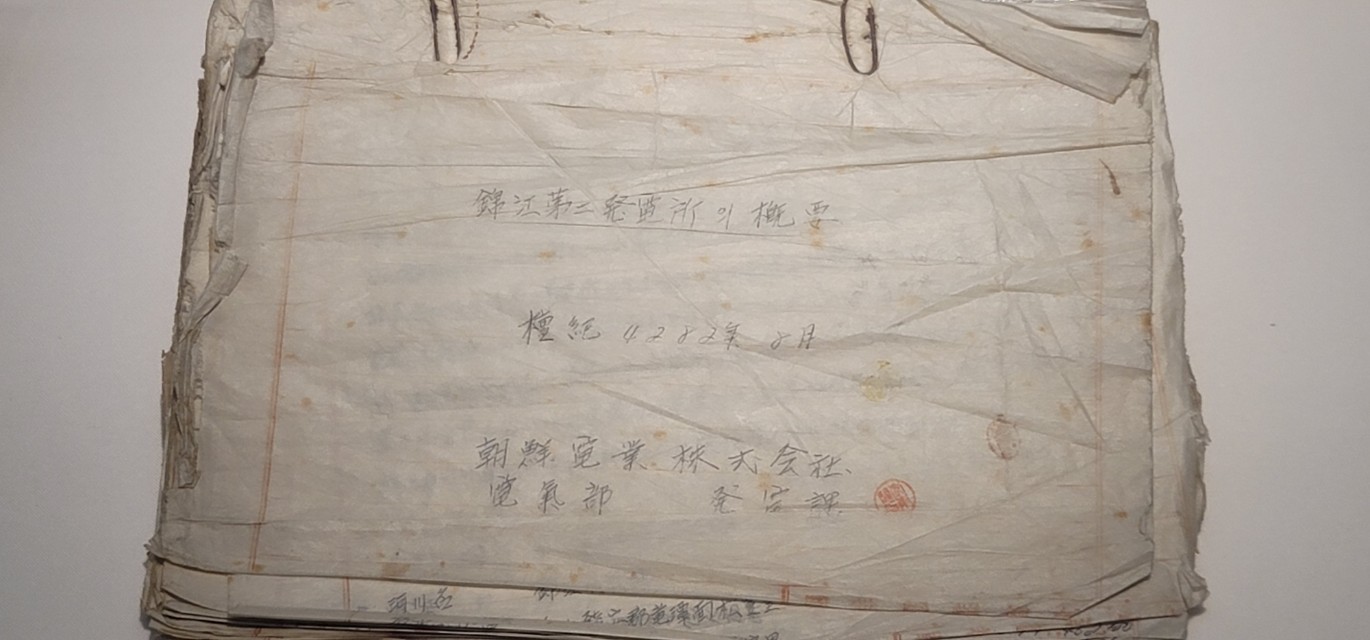 錦江第二発電所의 概要
檀紀 4282年 8月
朝鮮電業株式会社
電氣部 発電課
河川名